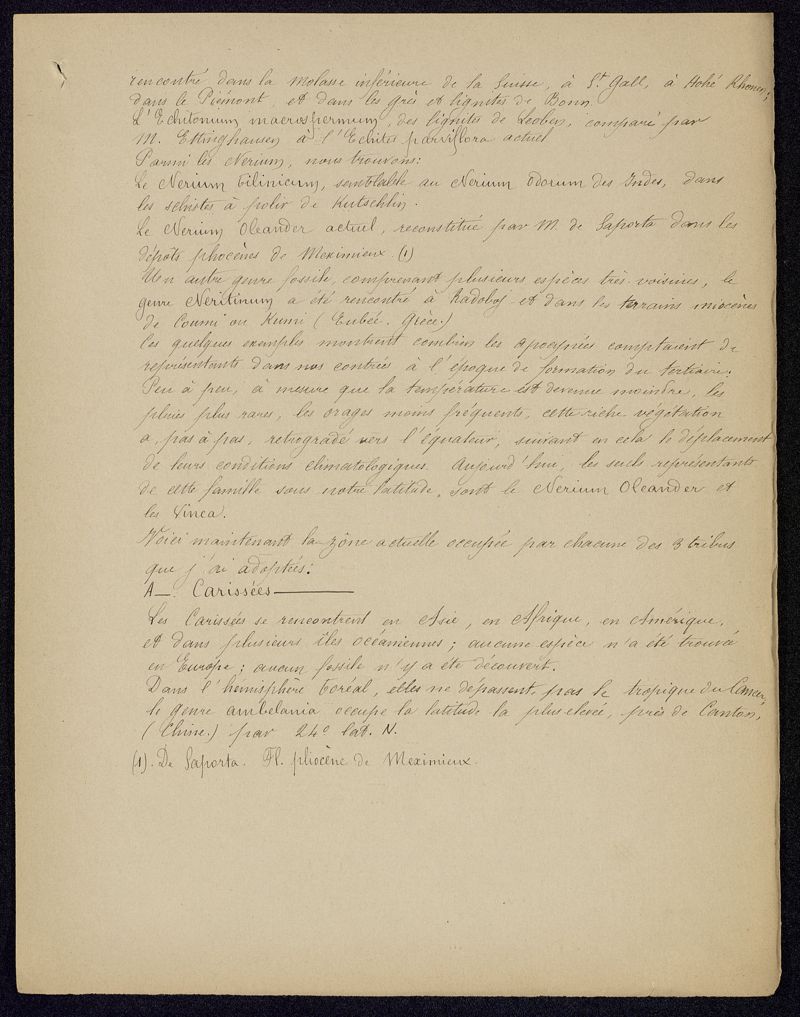 rencontré dans la Molasse inférieure de la Suisse, à St Gall, à Hohé Rhonen;
dans le Piémont, et dans les grès et lignites de Bonn.
L'Echitonium macrospermum, des lignites de Leoben, comparé par
M. Ettinghausen à l'Echites parviflora actuel
Parmi les Nerium, nous trouvons:
Le Nerium bilinicum, semblable au Nerium Odorum des Indes, dans
les schistes à polir de Kutschlin.
Le Nerium Oleander actuel, reconstitué par M. de Saporta dans les
dépôts pliocènes de Meximieux (1)
Un autre genre fossile, comprenant plusieurs espèces très voisines, le
genre Neritinium a été rencontré à Radoboj et dans les terrains miocènes
de Coumi ou Kumi (Eubée. Grèce.)
Ces quelques exemples montrent combien les apocynées comptaient de
représentants dans nos contrées à l'époque de formation du tertiaire.
Peu à peu, à mesure que la température est devenue moindre, les
pluies plus rares, les orages moins fréquents, cette riche végétation
a, pas à pas, retrogradé vers l'équateur, suivant en cela le déplacement
de leurs conditions climatologiques. Aujourd'hui, les seuls représentants
de cette famille sous notre latitude, sont le Nerium Oleander et
les Vinca.
Voici maintenant la zône actuelle occupée par chacune des 3 tribus
que j'ai adoptées:
A_. Carissées
Les Carissées se rencontrent en Asie, en Afrique, en Amérique,
et dans plusieurs îles océaniennes; aucune espèce n'a été trouvée
en Europe; aucun fossile n'y a été découvert.
Dans l'hémisphère boréal, elles ne dépassent pas le tropique du Cancer,
le genre ambelania occupe la latitude la plus élevée, près de Canton,
(Chine.) par 24° lat. N.
(1). De Saporta. Fl. pliocène de Meximieux.